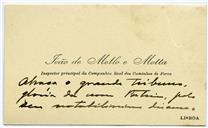 João de Mello e Motta
Inspector principal da Companhia Real dos Caminhos de Ferro
abraça o grande tribuno,
glória da nova Patria, pelo
seu notabilissimo discurso.
LISBOA